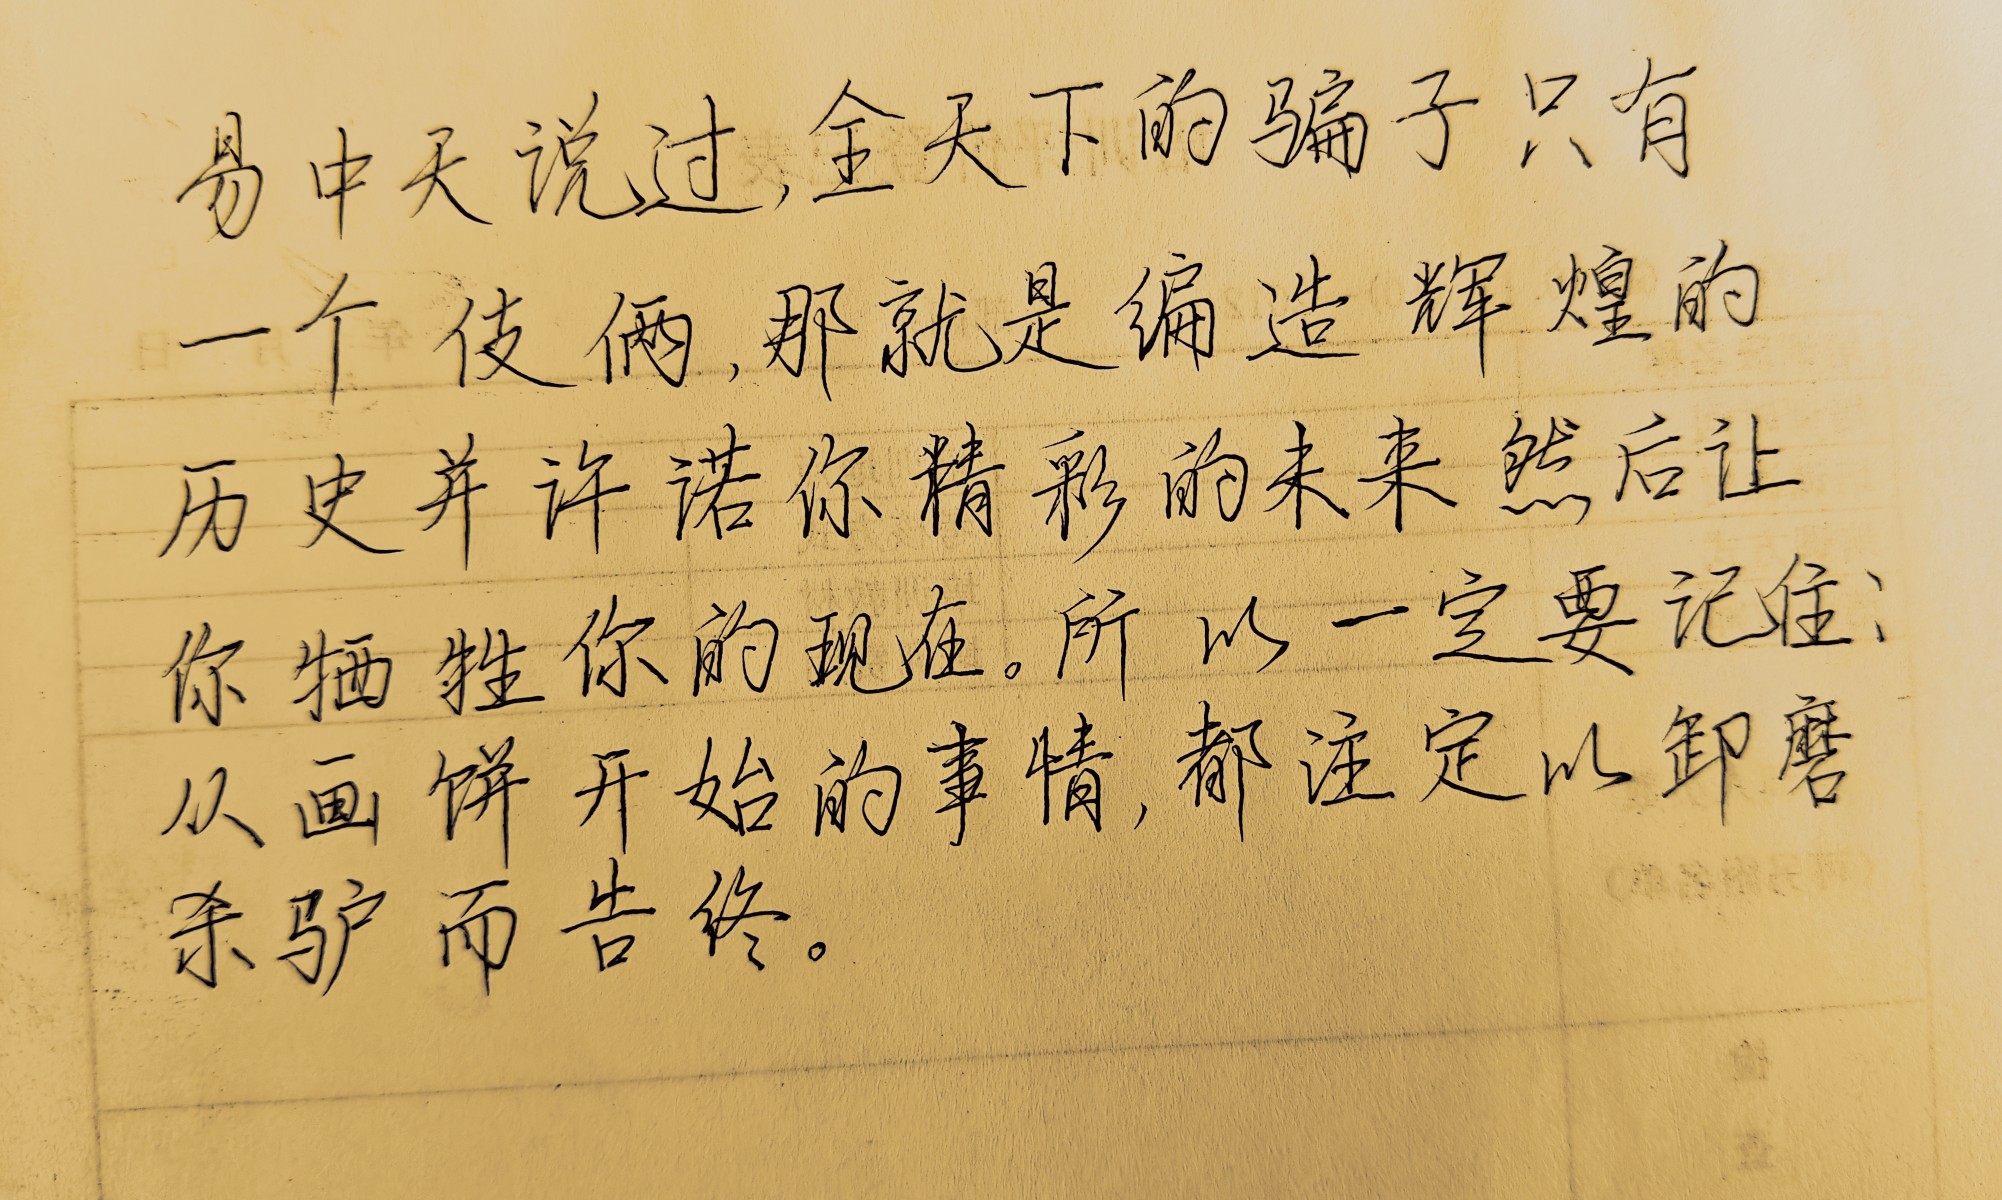 易中天说过,全天下的骗子只有
一个伎俩,那就是编造辉煌的
历史并许诺你精彩的未来然后让
你牺牲你的现在。所以一定要记住:
从画饼开始的事情,都注定以卸磨
杀驴而告终。